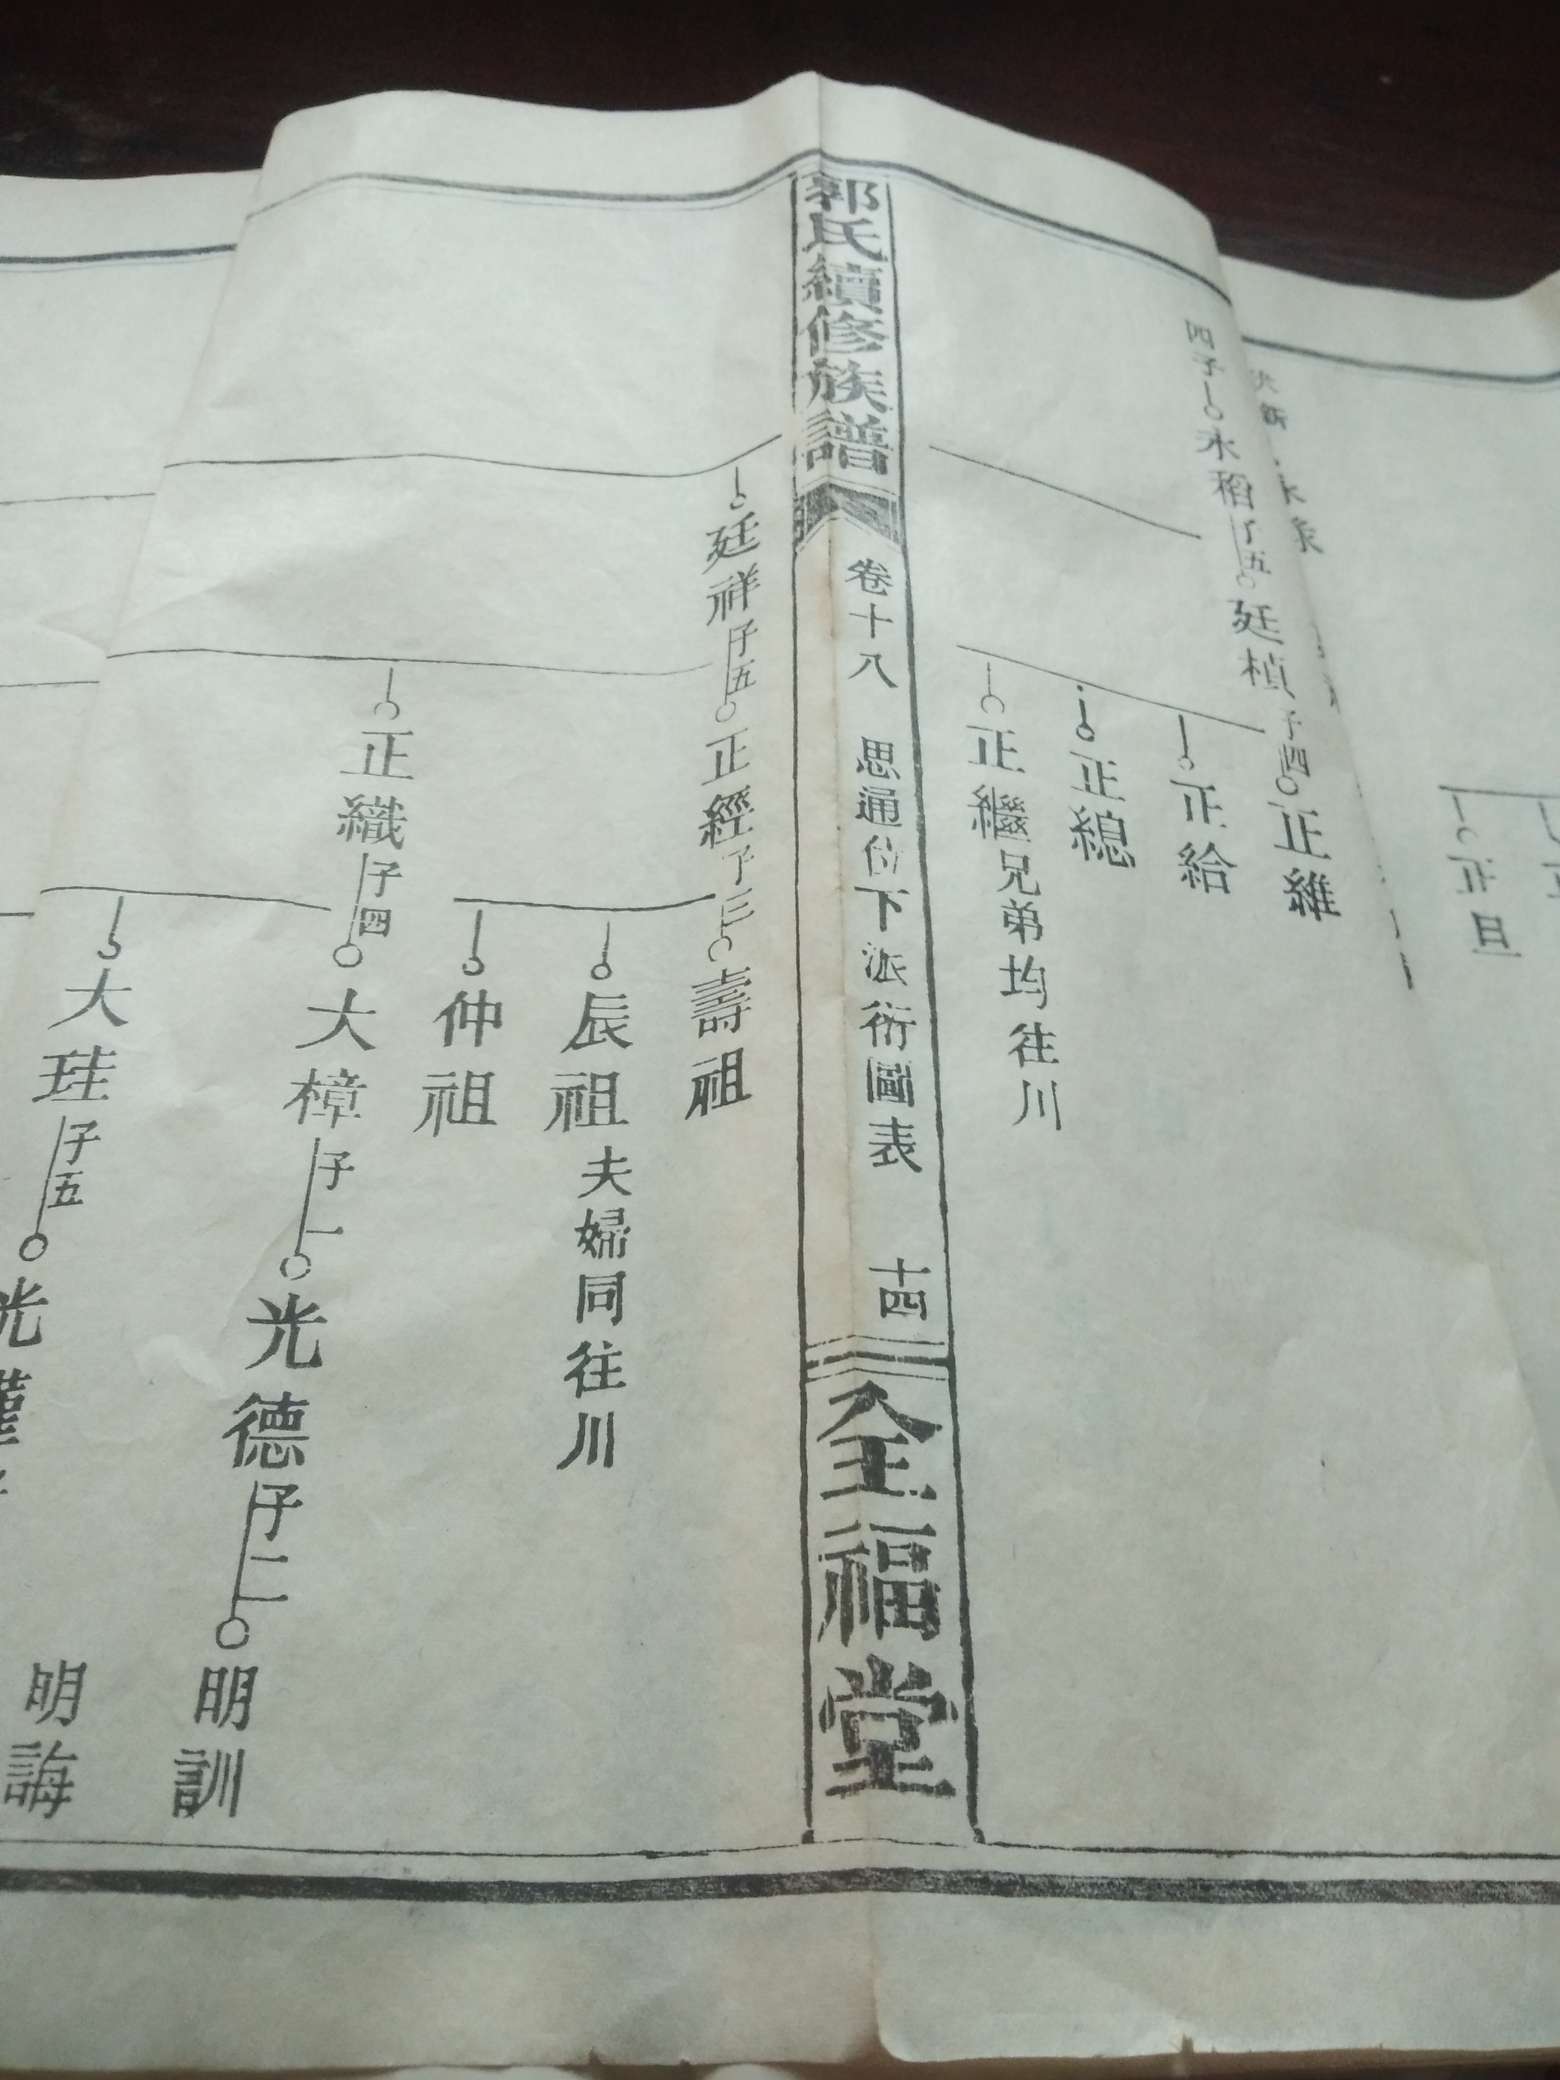 四子 永稻 子五 廷楨 子四 正維
正給
正總
正繼 兄弟均往川
郭氏續修族譜 卷十八 思通位下派衍圖表 十四 全福堂
廷祥 子五 正經 子三 壽祖
辰祖 夫婦同往川
仲祖
正織 子四 大樟 子一 光德 子二 明訓
明誨
大珪 子五 光